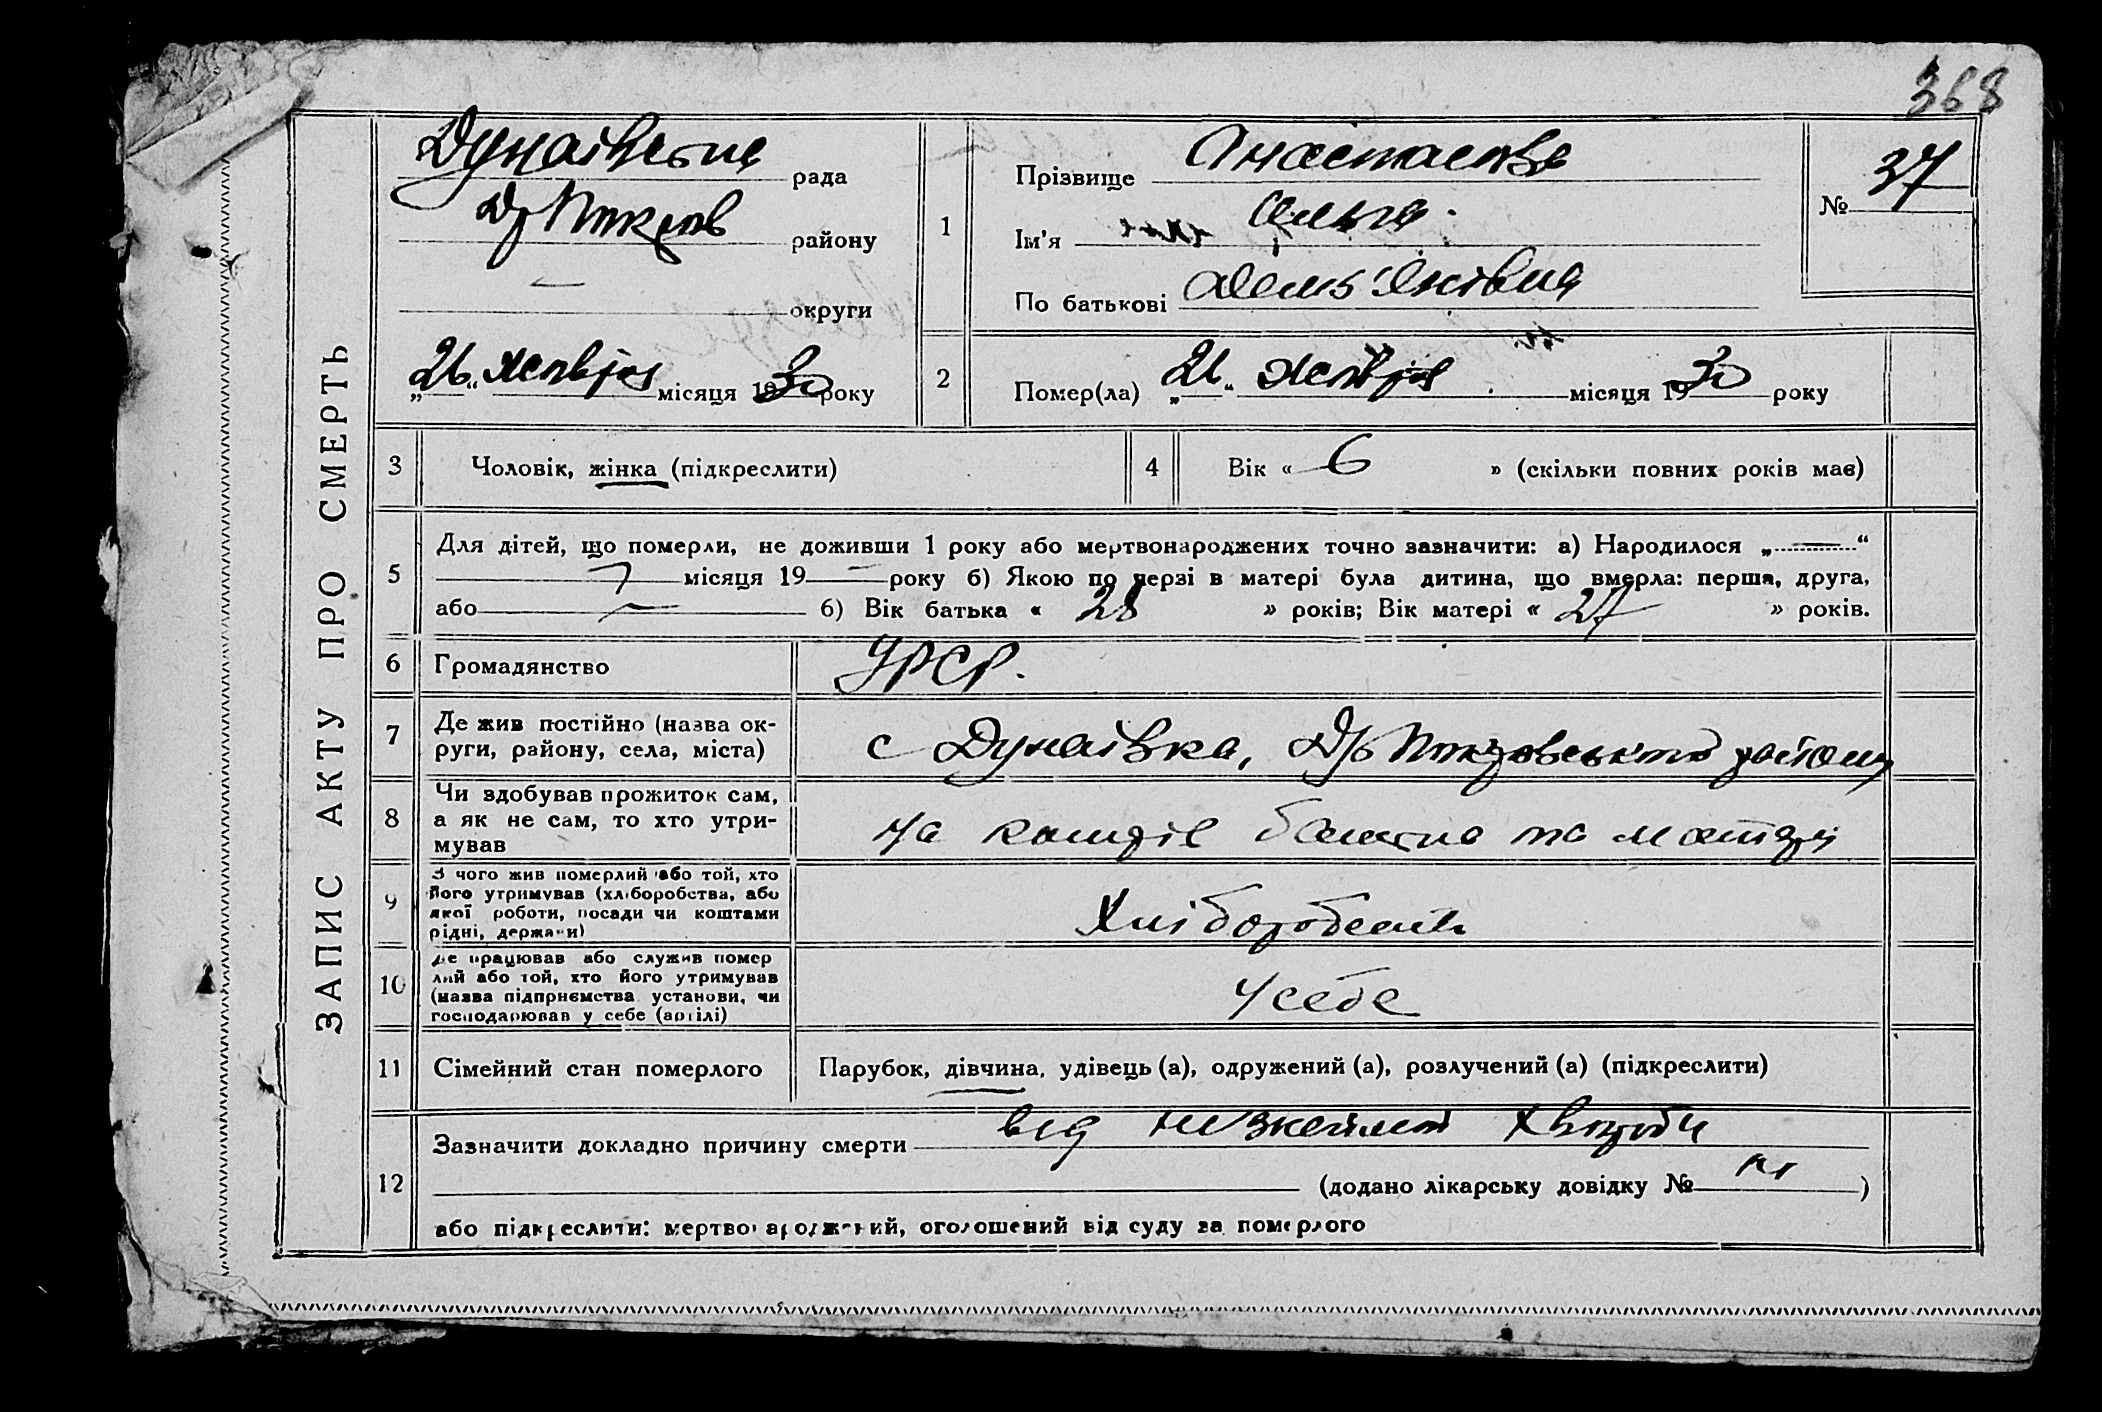 368
ЗАПИС АКТУ ПРО СМЕРТЬ
Дунаївська рада
району
— округи
„26“ жовтня місяця 1930 року
1
Прізвище
Ім'я Ольга
По батькові Дем'янівна
№ 37
2
Помер(ла) „26“ жовтня місяця 1930 року
3 Чоловік, жінка (підкреслити)
4 Вік « 6 » (скільки повних років має)
5
Для дітей, що померли, не доживши 1 року або мертвонароджених точно зазначити: а) Народилося „—“
місяця 19— року б) Якою по черзі в матері була дитина, що вмерла: перша, друга,
або — б) Вік батька « 28 » років; Вік матері « 27 » років.
6 Громадянство УРСР.
7 Де жив постійно (назва ок-
руги, району, села, міста)
с Дунаівка, району
8 Чи здобував прожиток сам,
а як не сам, то хто утри-
мував
На батька та матері
9 З чого жив померлий або той, хто
його утримував (хліборобства, або
якої роботи, посади чи коштами
рідні, держави)
Хліборобства
10 Де працював або служив помер
лий або той, хто його утримував
(назва підприємства установи, чи
господарював у себе (артілі)
У себе
11 Сімейний стан померлого Парубок, дівчина, удівець (а), одружений (а), розлучений (а) (підкреслити)
12
Зазначити докладно причину смерти від хвороби
(додано лікарську довідку № )
або підкреслити: мертвонароджений, оголошений від суду за померлого